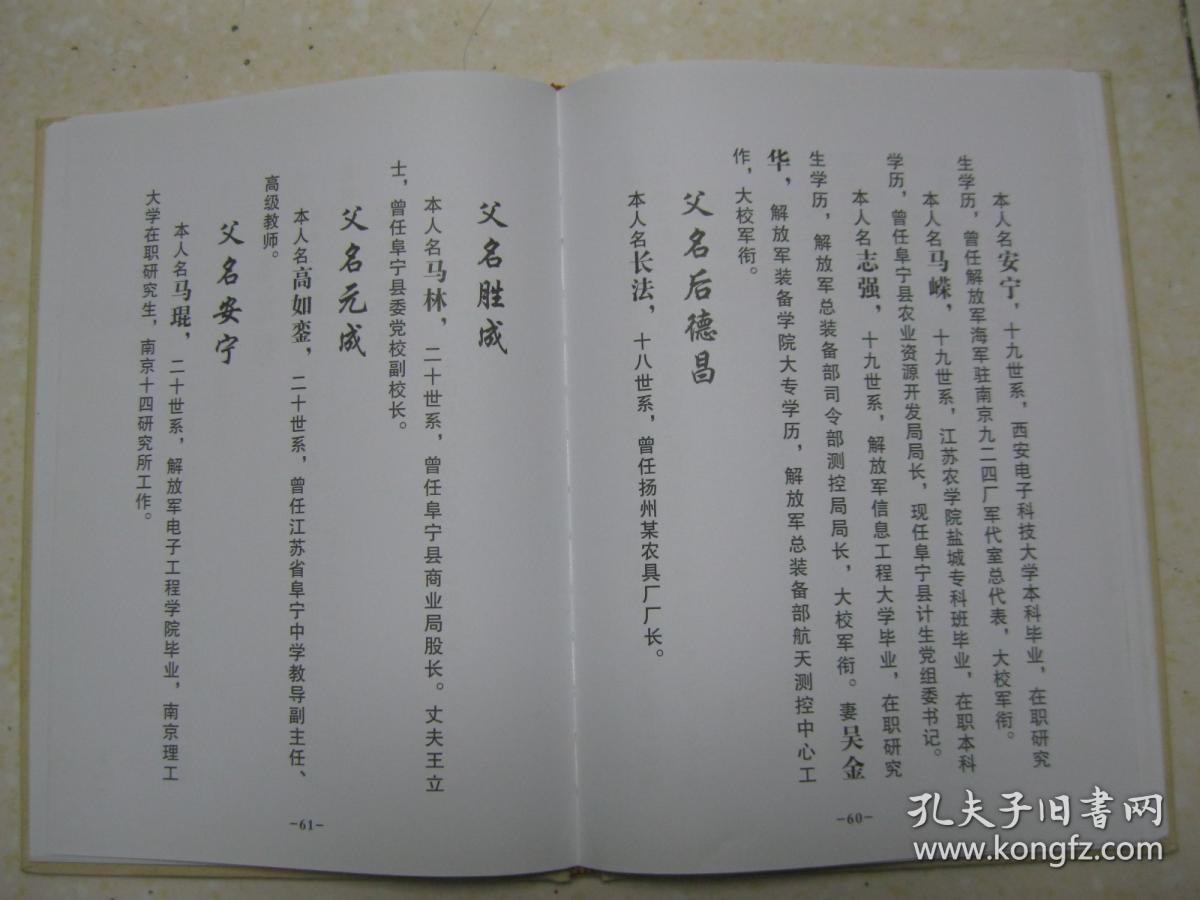 本人名安宁，十九世系，西安电子科技大学本科毕业，在职研究
生学历，曾任解放军海军驻南京九二四厂军代室总代表，大校军衔。
本人名马嵘，十九世系，江苏农学院盐城专科班毕业，在职本科
学历，曾任阜宁县农业资源开发局局长，现任阜宁县计生党组委书记。
本人名志强，十九世系，解放军信息工程大学毕业，在职研究
生学历，解放军总装备部司令部测控局局长，大校军衔。妻吴金
华，解放军装备学院大专学历，解放军总装备部航天测控中心工
作，大校军衔。
父名后德昌
本人名长法，十八世系，曾任扬州某农具厂厂长。
-60-
父名胜成
本人名马林，二十世系，曾任阜宁县商业局股长。丈夫王立
士，曾任阜宁县委党校副校长。
父名元成
本人名高如銮，二十世系，曾任江苏省阜宁中学教导副主任、
高级教师。
父名安宁
本人名马琨，二十世系，解放军电子工程学院毕业，南京理工
大学在职研究生，南京十四研究所工作。
-61-
孔夫子旧书网
www.kongfz.com